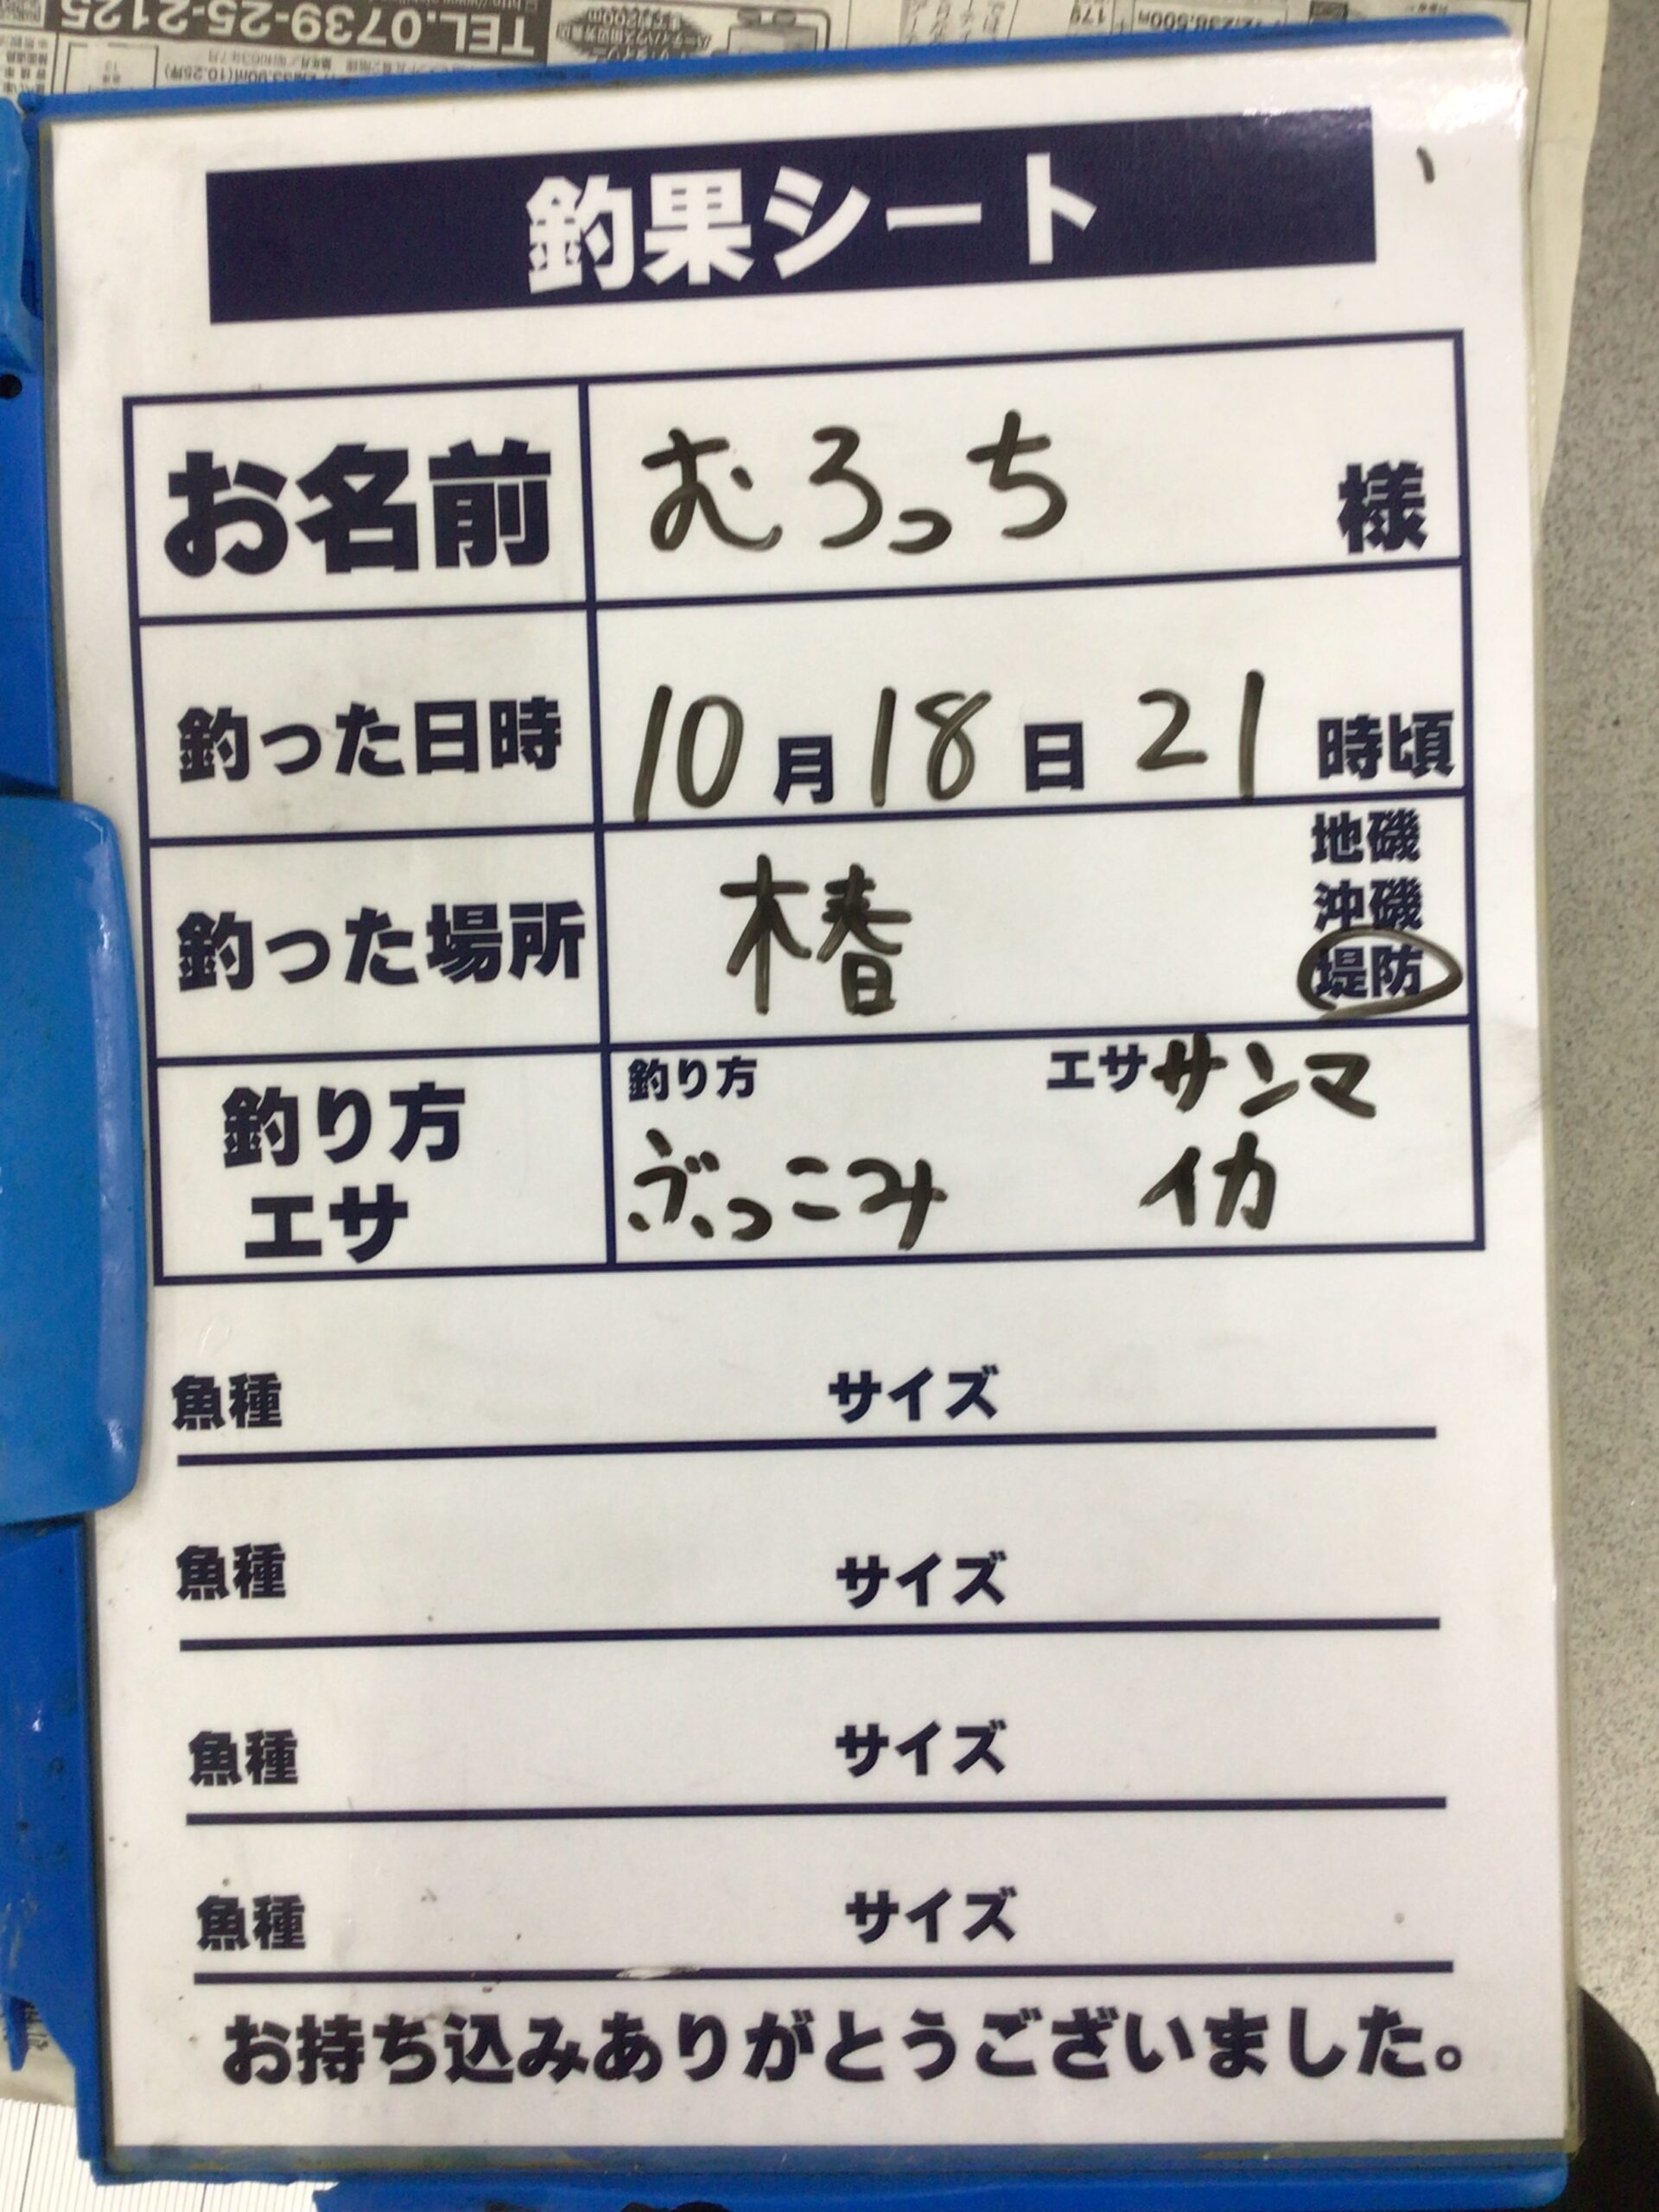 TEL.0739-25-2125
釣果シート
お名前 むろっち 様
釣った日時 10月18日21時頃
地磯
沖磯
釣った場所 椿 堤防
釣り方 エササンマ
釣り方 ぶっこみ イカ
エサ
魚種 サイズ
魚種 サイズ
魚種 サイズ
魚種 サイズ
お持ち込みありがとうございました。